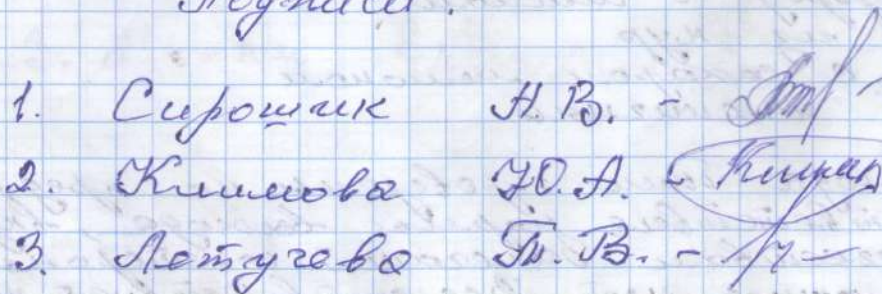 Подписи:
1. Сирошик Н.В. -
2. Климова Ю.А. -
3. Летучева Т.В. -